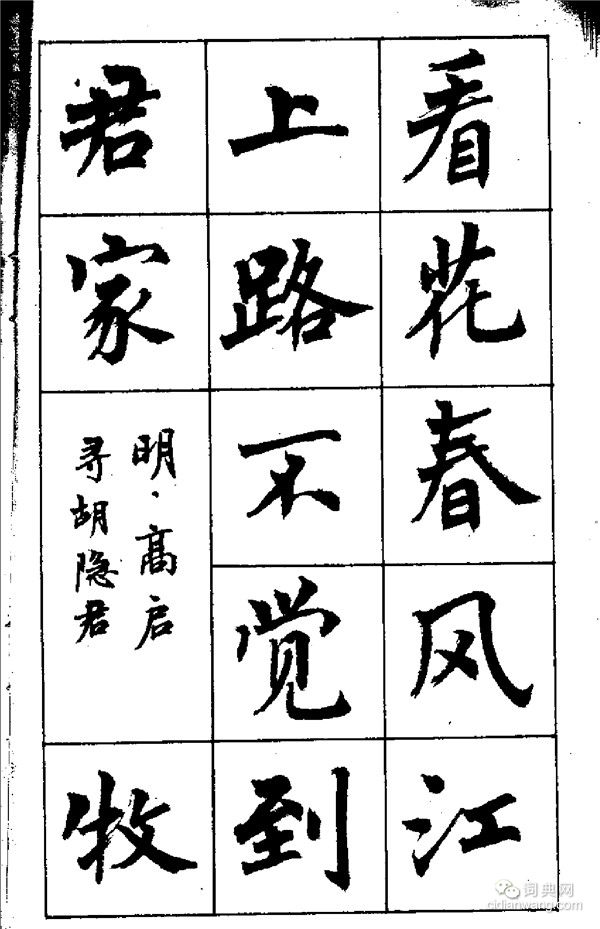 看花春风江
上路不觉到
君家
明·高启
寻胡隐君
牧
词典网
cidianwang.com